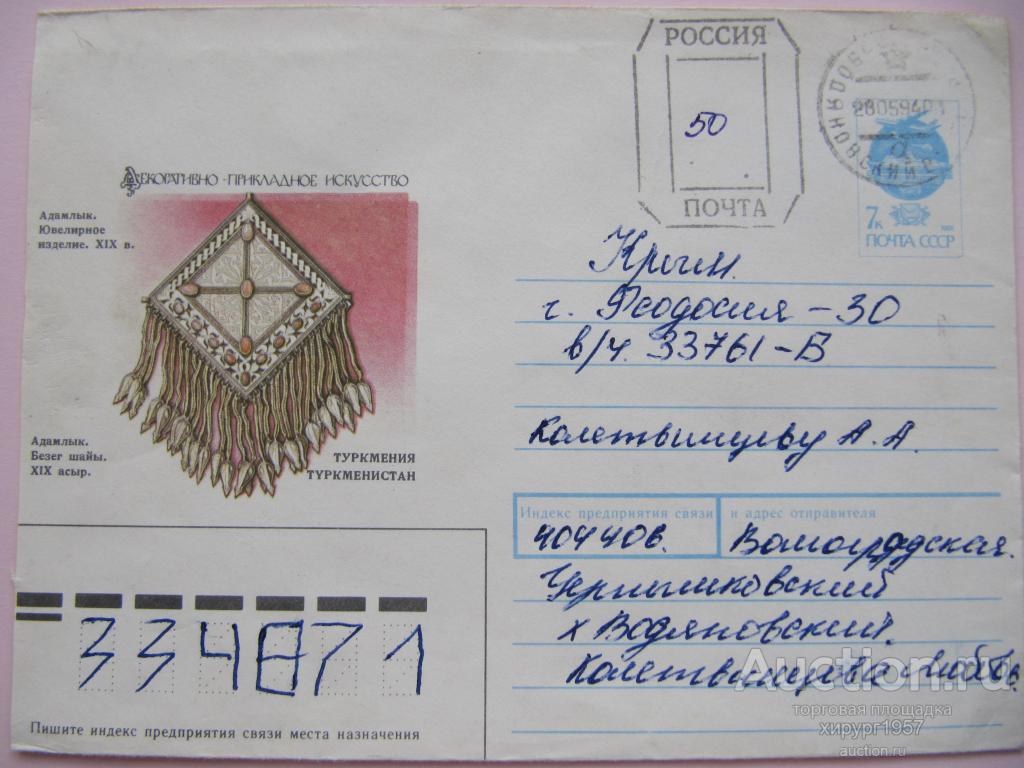 РОССИЯ
50
ПОЧТА
280594
7к
ПОЧТА СССР
ДЕКОРАТИВНО-ПРИКЛАДНОЕ ИСКУССТВО
Адамлык.
Ювелирное
изделие. XIX в.
Адамлык.
Безег шайы.
XIX асыр.
ТУРКМЕНИЯ
ТҮРКМЕНИСТАН
Крым.
г. Феодосия-30
в/ч. 33761-Б
Колетвинцеву А. А.
Индекс предприятия связи и адрес отправителя
404406. Волгоградская.
Чернышковский
х Водяновский.
334871
Пишите индекс предприятия связи места назначения
Auction.ru
торговая площадка
хирург1957
auction.ru